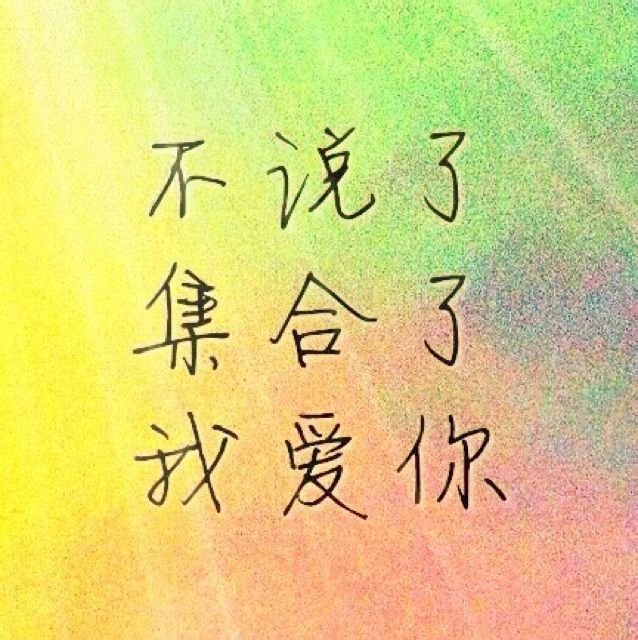 不说了
集合了
我爱你